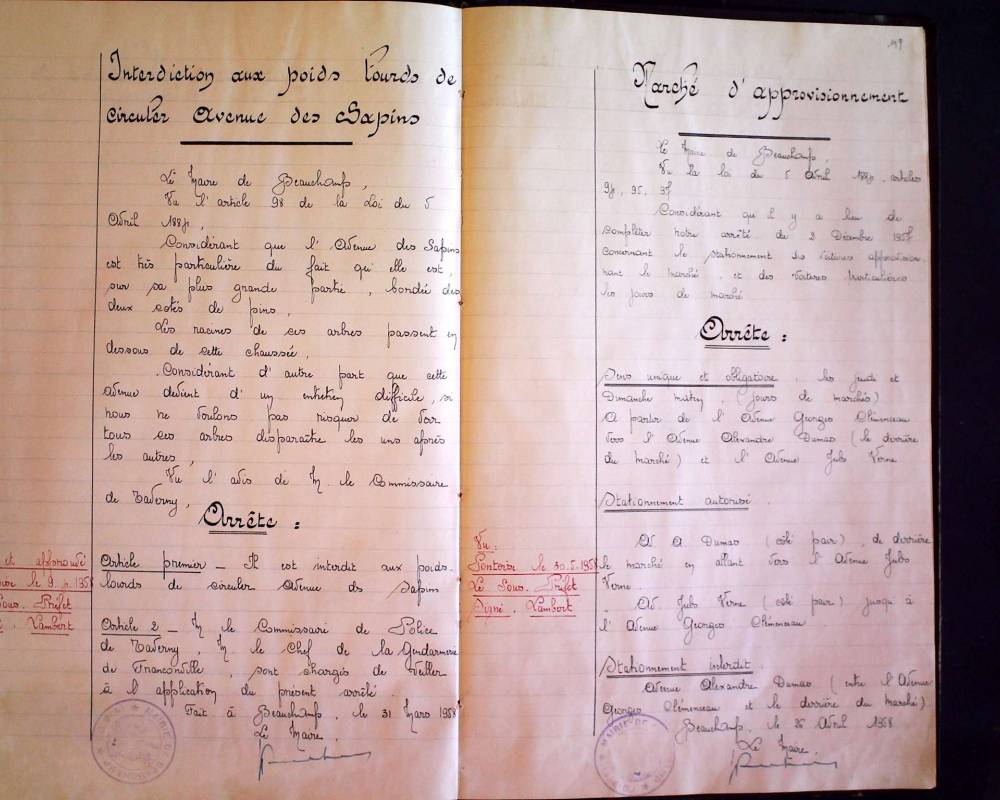 Interdiction aux poids lourds de
circuler Avenue des Sapins
Le Maire de Beauchamp,
Vu l'article 98 de la Loi du 5
Avril 1884,
Considérant que l'Avenue des Sapins
est très particulière du fait qu'elle est,
sur sa plus grande partie, bordée des
deux cotés de pins,
Les racines de ces arbres passent en
dessous de cette chaussée,
Considérant d'autre part que cette
avenue devient d'un entretien difficile, si
nous ne voulons pas risquer de voir
tous ces arbres disparaître les uns après
les autres,
Vu l'avis de M. le Commissaire
de Taverny,
Arrête :
et approuvé
le 9
Sous. Préfet
Lambert
Article premier - Il est interdit aux poids-
lourds de circuler Avenue des Sapins
Article 2 - M. le Commissaire de Police
de Taverny, M. le Chef de la Gendarmerie
de Franconville, sont chargés de veiller
à l'application du présent arrêté.
Fait à Beauchamp, le 31 Mars 1958
Le Maire,
Marché d'approvisionnement
Le Maire de Beauchamp,
Vu la loi du 5 Avril 1884, articles
94, 95, 97
Considérant qu'il y a lieu de
compléter notre arrêté du 2 Décembre 1957
concernant le stationnement des voitures approvision-
nant le marché, et des voitures particulières
les jours de marché
Arrête :
Sens unique et obligatoire, les jeudi et
Dimanche matin, (jours de marchés)
A partir de l'Avenue Georges Clémenceau
vers l'Avenue Alexandre Dumas (le derrière
du marché) et l'Avenue Jules Verne
Stationnement autorisé.
Vu :
Pontoise le 30.5.1958
Le Sous. Préfet
Signé. Lambert
Av A. Dumas (côté pair), de derrière
le marché en allant vers l'Avenue Jules
Verne.
Av. Jules Verne (côté pair) jusqu'à
l'Avenue Georges Clémenceau
Stationnement interdit.
Avenue Alexandre Dumas (entre l'Avenue
Georges Clémenceau et le derrière du marché)
Beauchamp, le 25 Avril 1958
Le Maire,